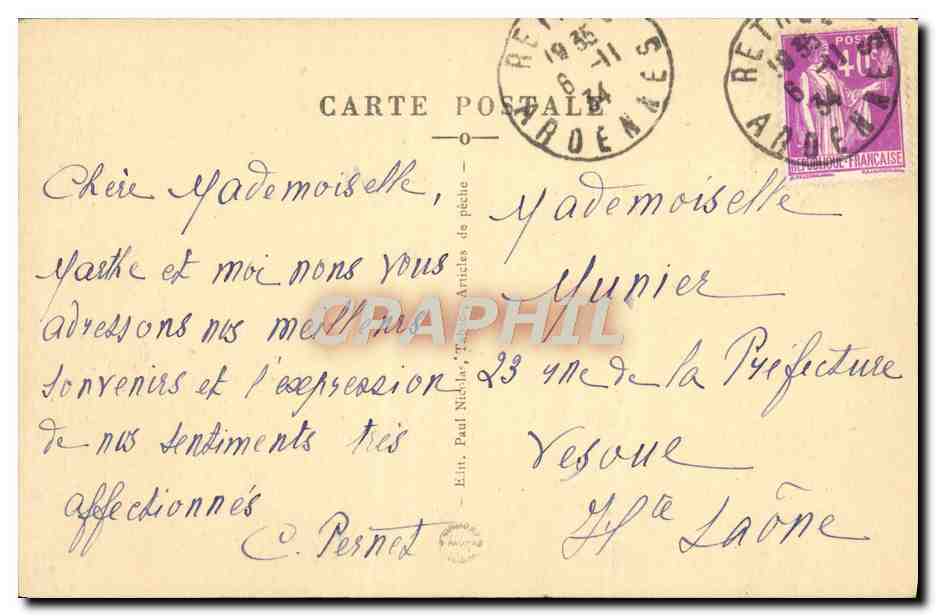 CARTE POSTALE
RETHEL
19 35
6 -11
34
ARDENNES
RETHEL
19 35
6 -11
34
ARDENNES
POSTES
40
REPUBLIQUE-FRANCAISE
Chère Mademoiselle,
Marthe et moi nous vous
adressons nos meilleurs
souvenirs et l'expression
de nos sentiments très
affectionnés
C. Pernet
Edit. Paul Nicolas, Articles de pêche
Mademoiselle
Munier
23 rue de la Préfecture
Vesoul
Hte Saône
CPAPHIL